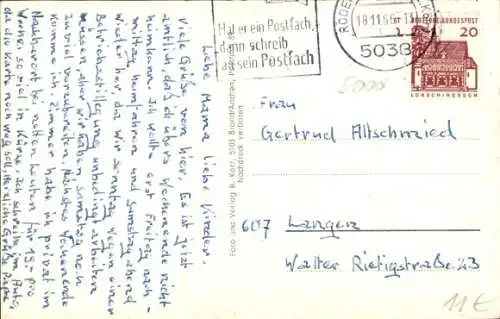 Hat er ein Postfach,
dann schreib
sein Postfach
18.11.66-13
5038
DEUTSCHE BUNDESPOST
20
LORSCH/HESSEN
Liebe Mama liebe Kinder,
Viele Grüße von hier. Es ist jetzt
amtlich, daß ich übers Wochenende nicht
heimkann. Ich wollte erst Freitag nach-
mittag heimfahren und Samstag abend
wieder her, da wir Sonntag wegen einer
Betriebsstillegung unbedingt arbeiten
müssen, aber wir haben Samstag noch
zuviel vorzubereiten. Nächstes Wochenende
komme ich. Zimmer habe ich privat im
Nachbarort bei netten Leuten für 19.- pro
Woche, so viel in Kürze. Ich schreibe im Auto
da die Karte noch weg soll, Herzliche Grüße Papa
Foto und Verlag B. Korr, 5103 Brand/Aachen
Nachdruck verboten
5000
Frau
Gertrud Altschmied
607 Langen
Walter Rietigstraße 43
11€